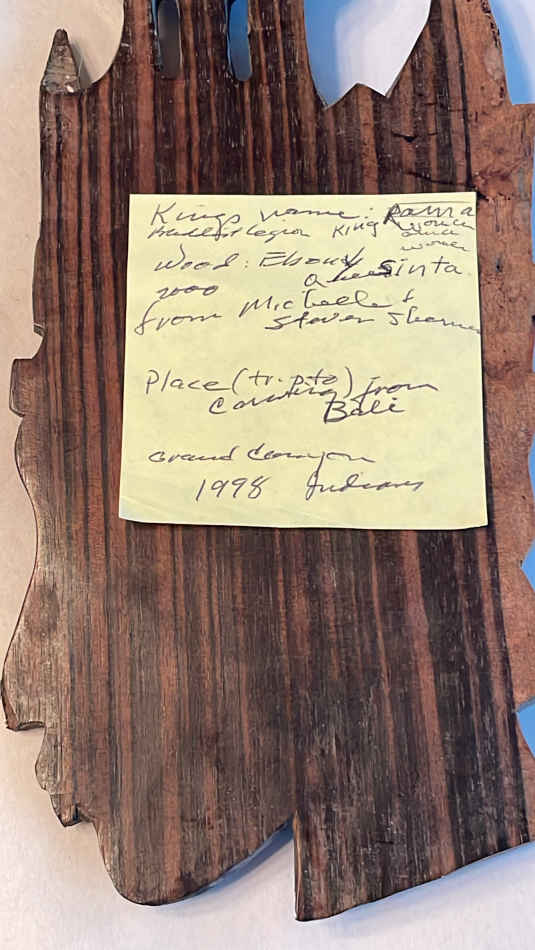 Kings name: Rama
King
wood: Ebony
Queen Sinta
2000
from Michelle &
Steven
Place (trip to) from
Carving Bali
Grand Canyon
1998 Indians